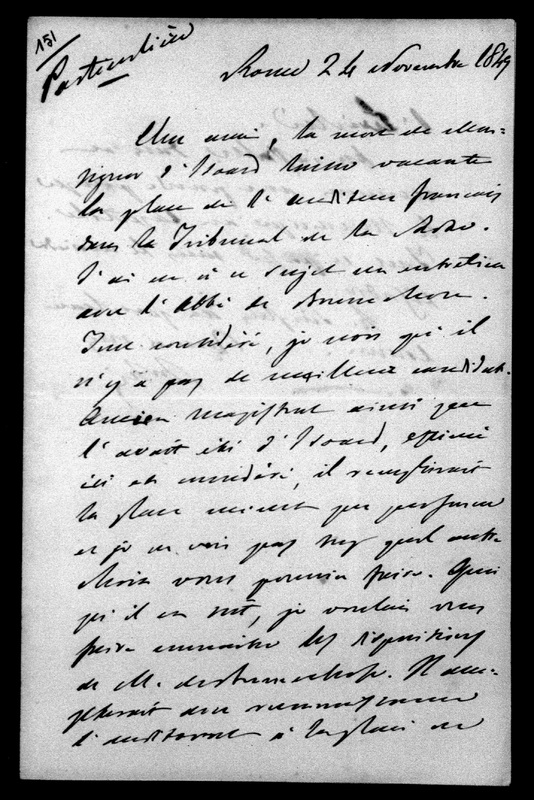 151
Particulière
Rome 24 Novembre 1849
Cher ami, la mort de Mon-
signor d'Isoard laisse vacante
la place de l'auditeur français
dans le Tribunal de la Rote.
J'ai eu à ce sujet un entretien
avec l'Abbé de
Tout considéré, je crois qu'il
n'y a pas de meilleur candidat.
Ancien magistrat ainsi que
l'avait été d'Isoard, estimé
ici et considéré, il remplirait
la place mieux que personne
et je ne vois pas sur quel autre
choix vous pourriez faire. Quoi
qu'il en soit, je voulais vous
faire connaître les dispositions
de M. de Il accep-
terait avec reconnaissance
l'auditorat